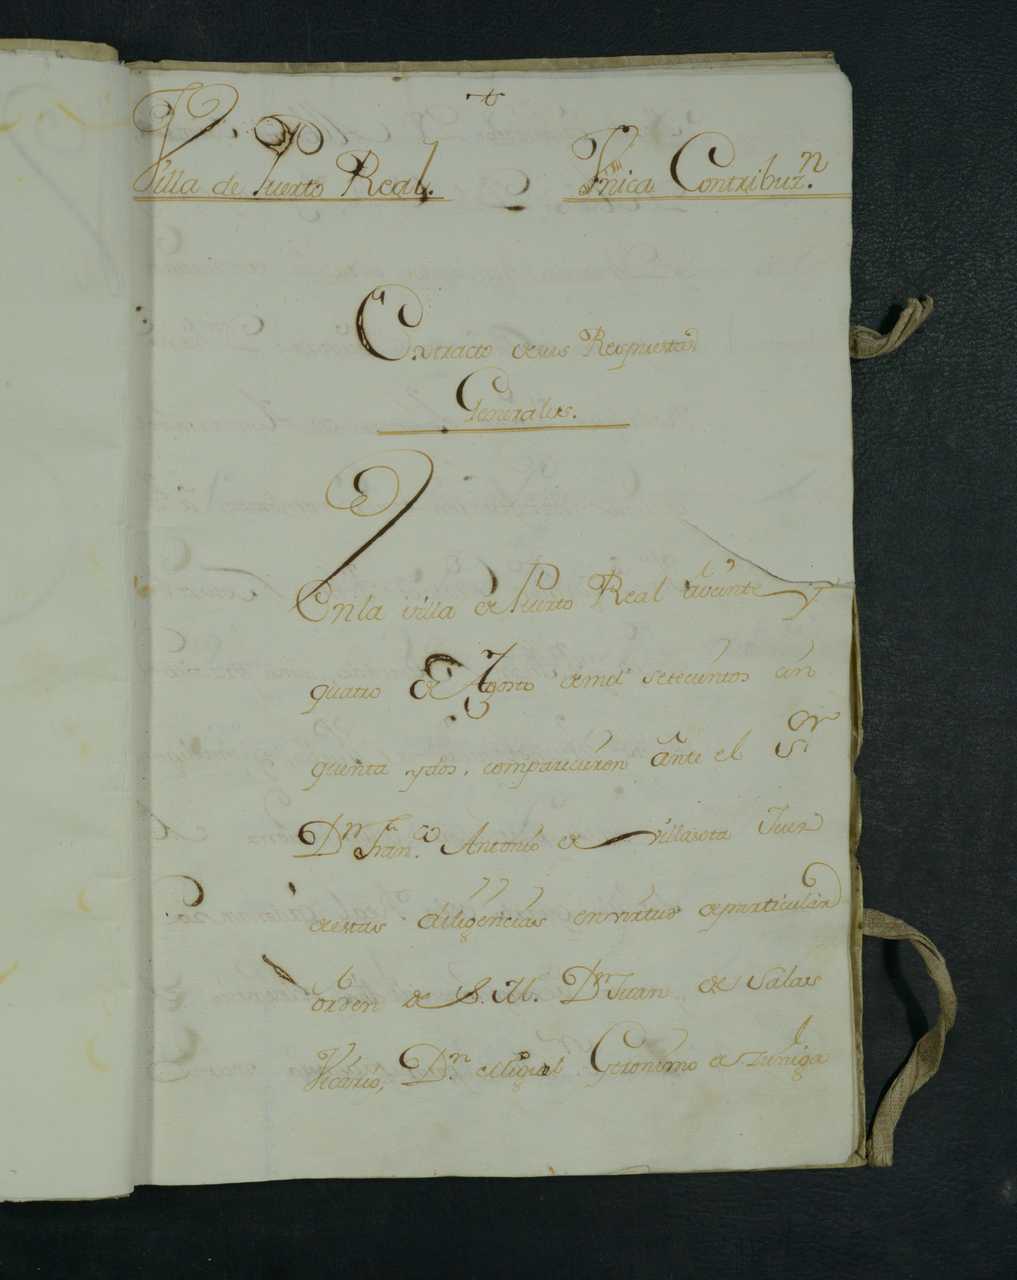 Villa de Puerto Real. Vnica Contribuz.n
Extracto desus Respuestas
Generales.
Enla villa de Puerto Real aveinte y
quatro de Agosto demil setecientos cin
quenta ydos, comparecieron ante el Sr
Dn Fran.co Antonio de Villasota Juez
destas diligencias envirtud departicular
orden de S.M. Dn Juan de Salas
Vicario, Dn Miguel Geronimo de Zuñiga